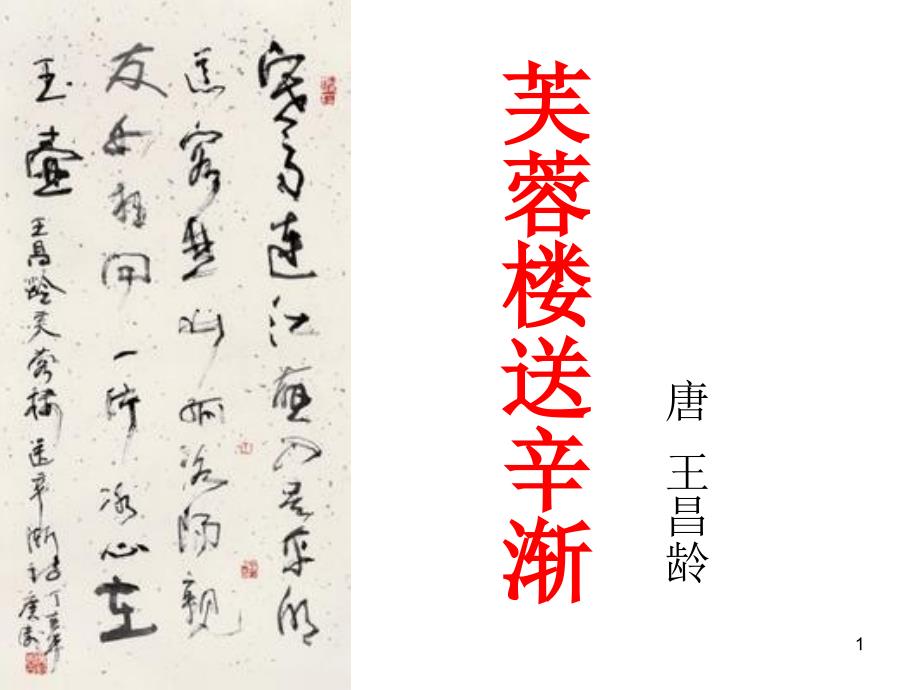 芙蓉楼送辛渐
唐 王昌龄
寒雨连江夜入吴平明
送客楚山孤洛陽親
友如相问一片冰心在
玉壶 王昌龄芙蓉楼送辛渐诗 丁亥年
1